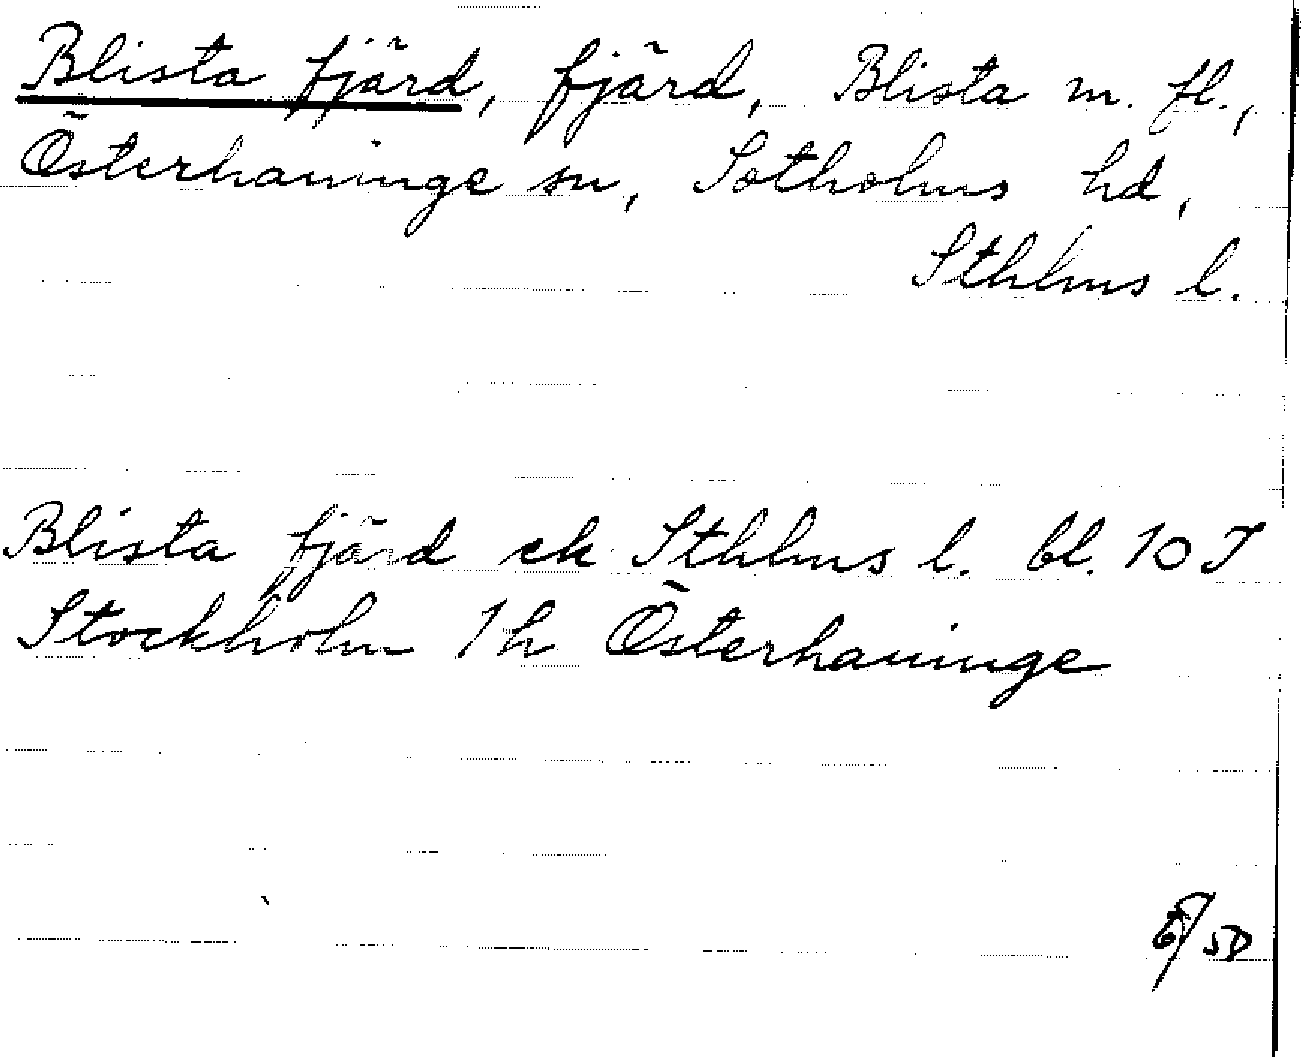 Blista fjärd, fjärd, Blista m. fl.,
Österhaninge sn, Sotholms hd,
Sthlms l.
Blista fjärd ek Sthlms l. bl. 10 J
Stockholm 1h Österhaninge